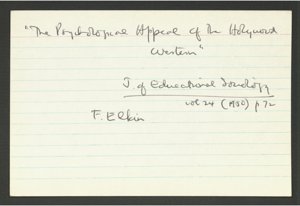 "The Psychological Appeal of the Hollywood
Western"
J. of Educational Sociology
vol 24 (1950) p 72
F. Elkin